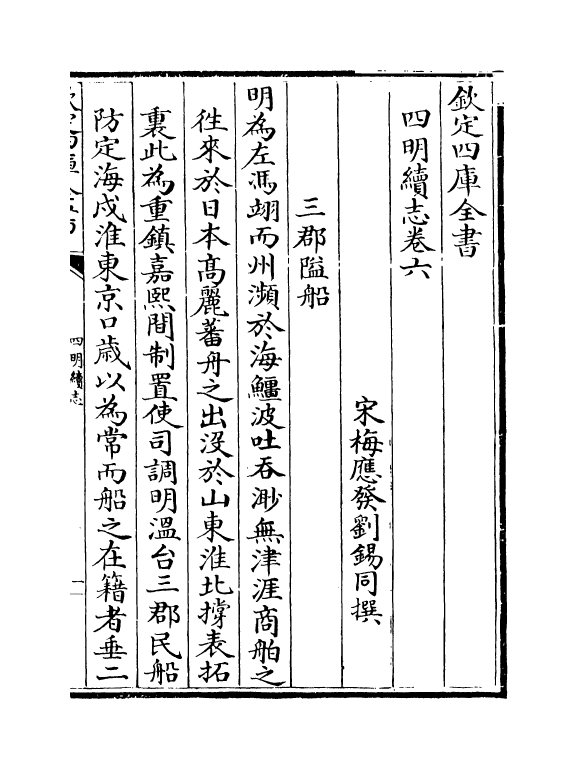 欽定四庫全書
四明續志卷六
宋梅應發劉錫同撰
三郡隘船
明為左馮翊而州瀕於海鱷波吐吞渺無津涯商舶之
徃來於日本髙麗蕃舟之出没於山東淮北撐表拓
裏此為重鎮嘉熙間制置使司調明溫台三郡民船
防定海戍淮東京口歲以為常而船之在籍者垂二
欽定四庫全書
四明續志
一